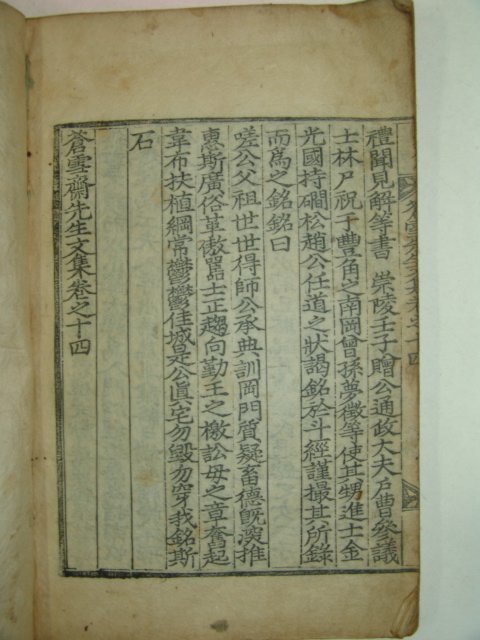 禮聞見解等書 崇陵壬子贈公通政大夫戶曹參議
士林尸祝于豐角之南岡曾孫夢徵等使其甥進士金
光國持磵松趙公任道之狀謁銘於斗經謹撮其所錄
而爲之銘銘曰
嗟公父祖世世得師公承典訓岡門質疑畜德旣深推
惠斯廣俗革傲嚚士正趨向勤王之檄訟母之章奮起
韋布扶植綱常鬱鬱佳城是公眞宅勿毁勿穿我銘斯
石
蒼雪齋先生文集卷之十四